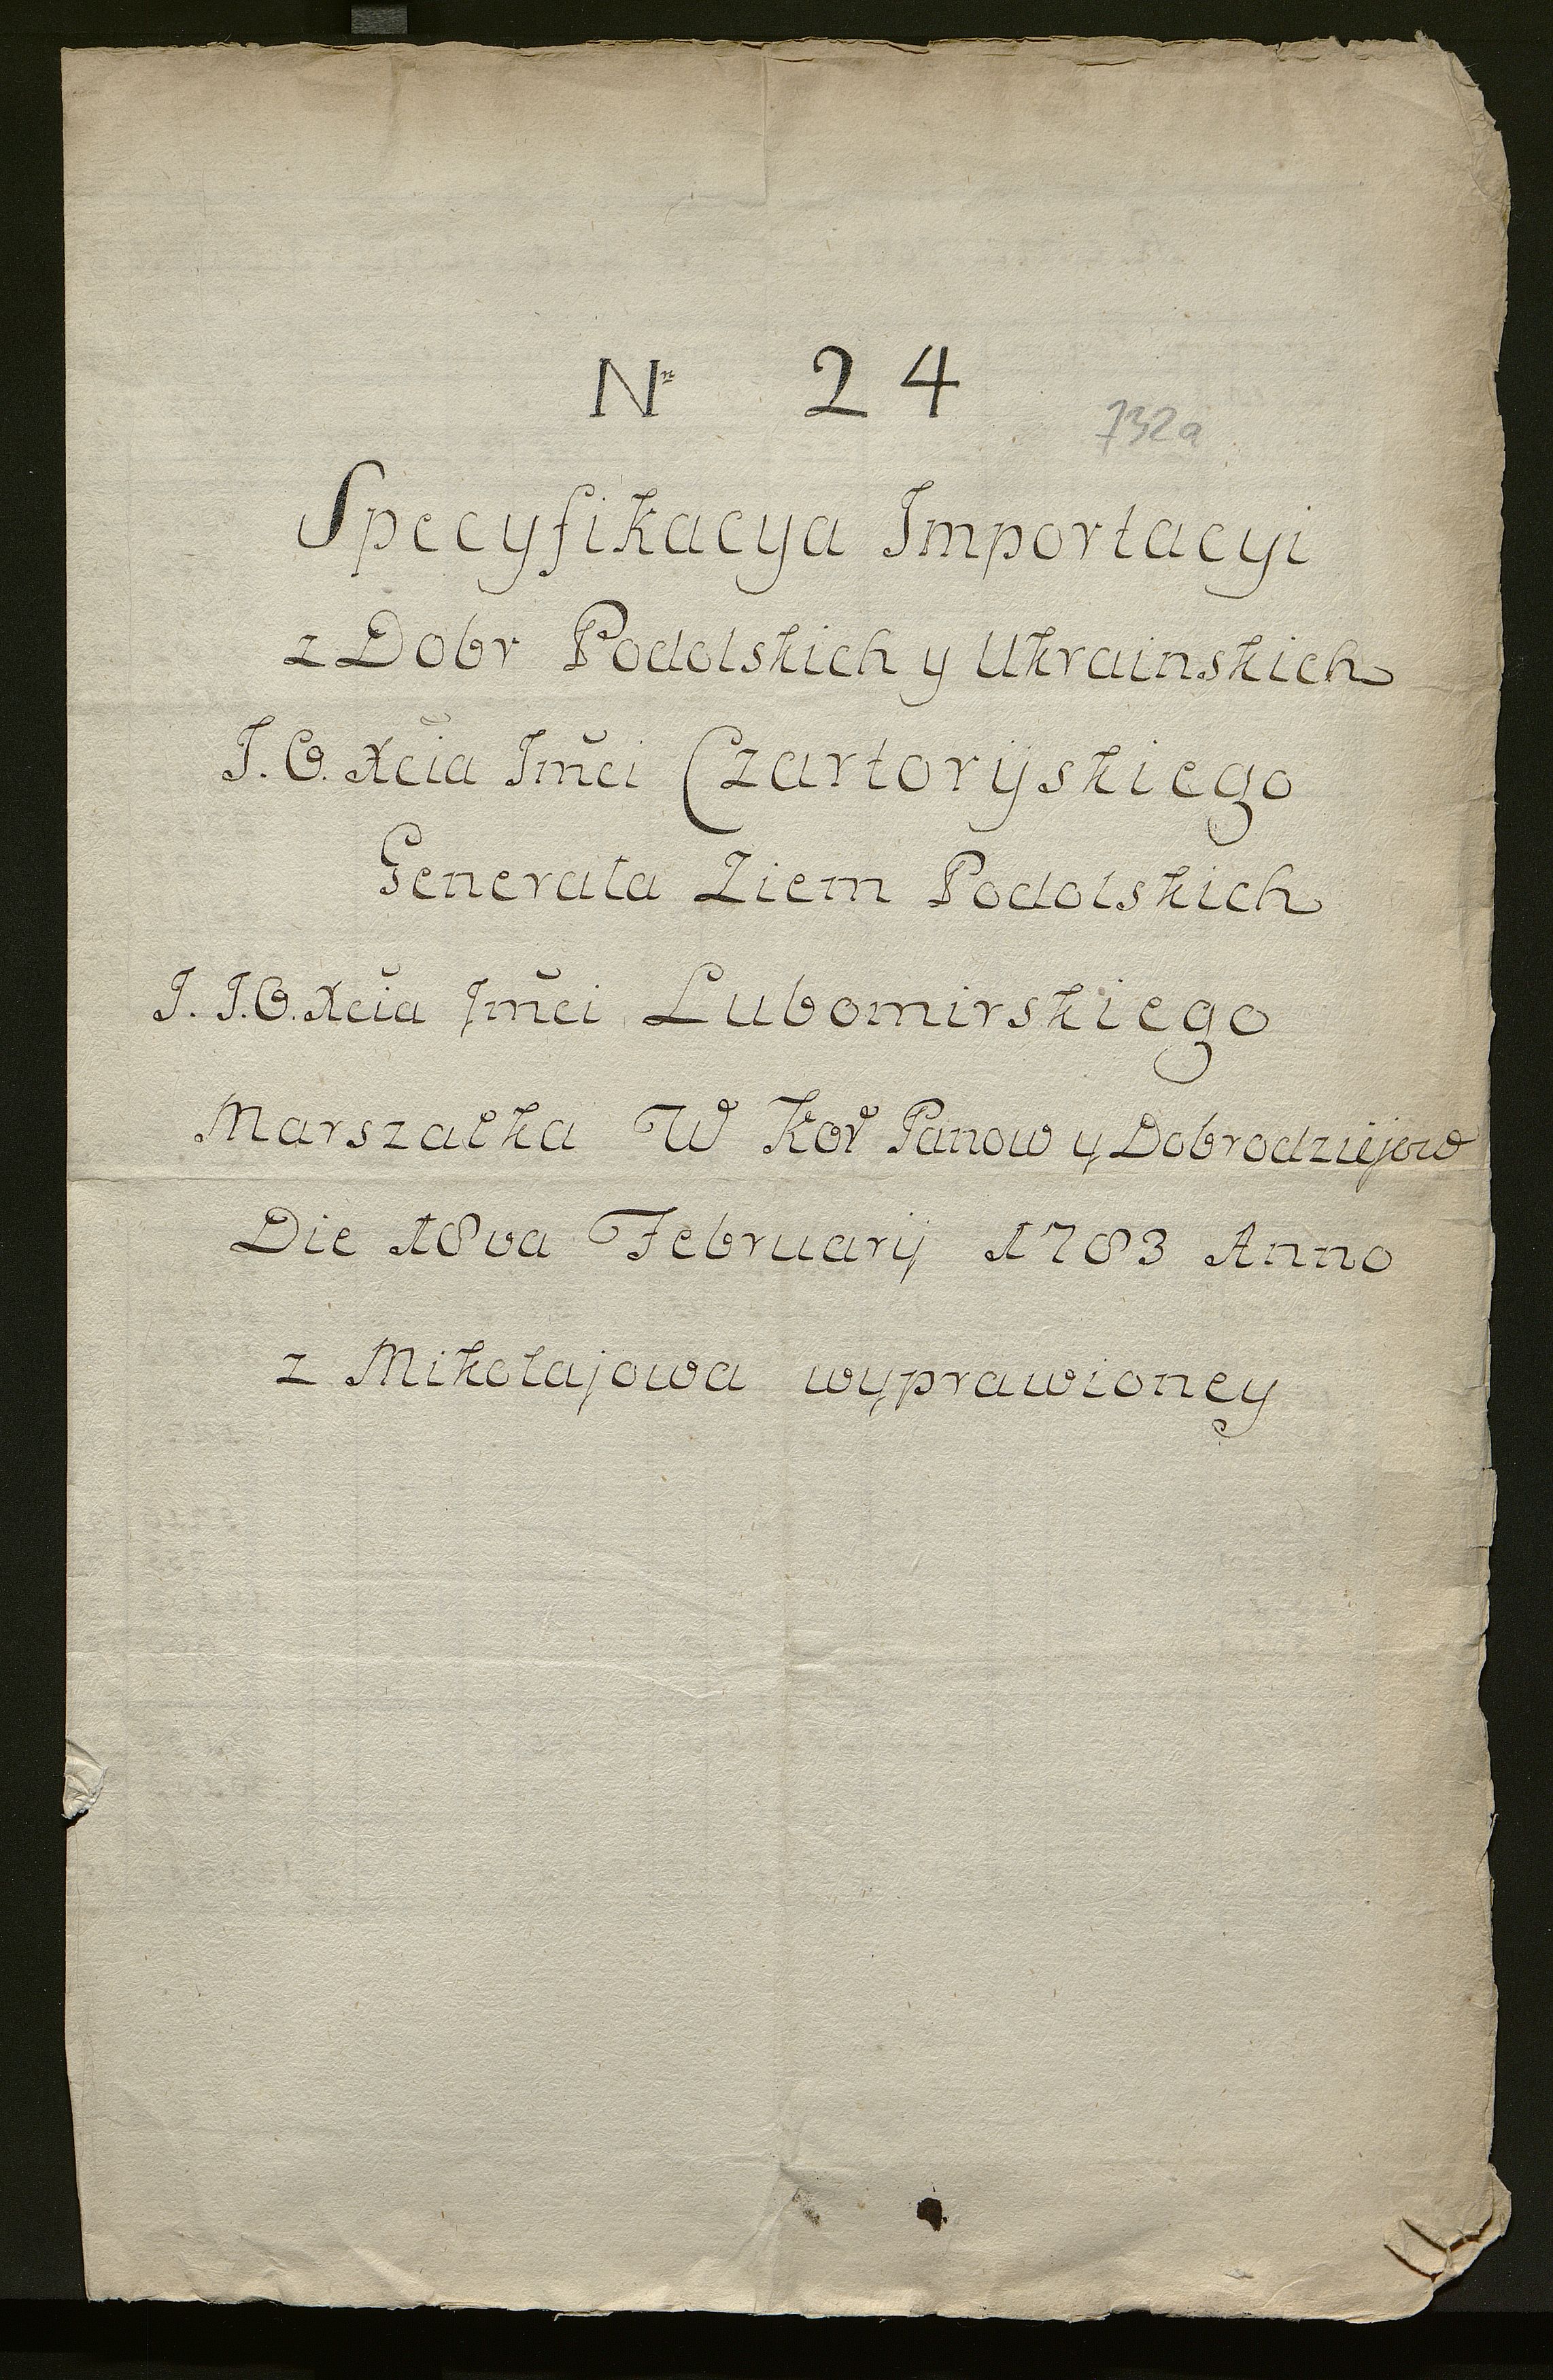 Nr 24
732a
Specyfikacya Importacyi
z Dobr Podolskich y Ukrainskich
J. O. Xcia Jmci Czartoryskiego
Generała Ziem Podolskich
J. J. O. Xcia Jmci Lubomirskiego
Marszałka W Kor Panow y Dobrodziejow
Die 18va Februarij 1783 Anno
z Mikołajowa wyprawioney